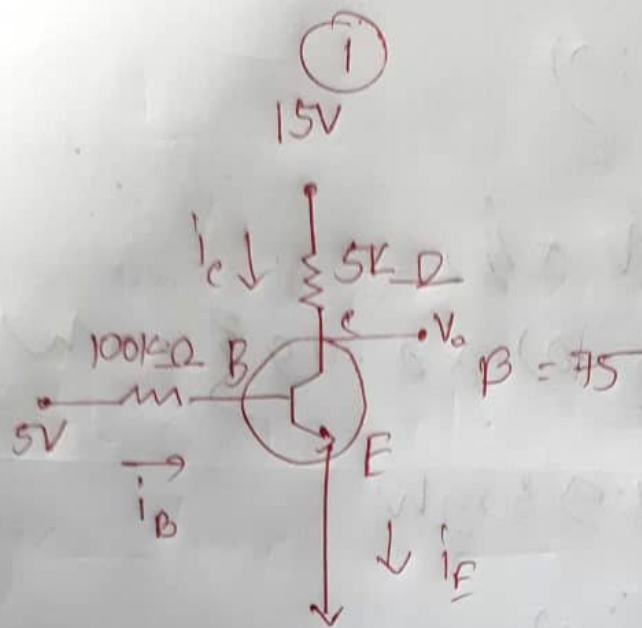 1
15V
ic
5K Ω
100KΩ
B
c
V₀
β = 75
5V
E
iB
iE